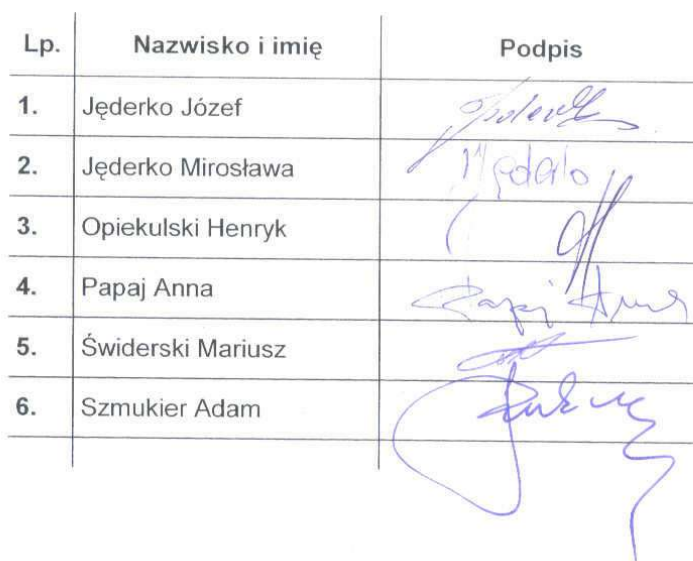 Lp. Nazwisko i imię Podpis
1. Jęderko Józef
2. Jęderko Mirosława
3. Opiekulski Henryk
4. Papaj Anna Papaj Anna
5. Świderski Mariusz
6. Szmukier Adam